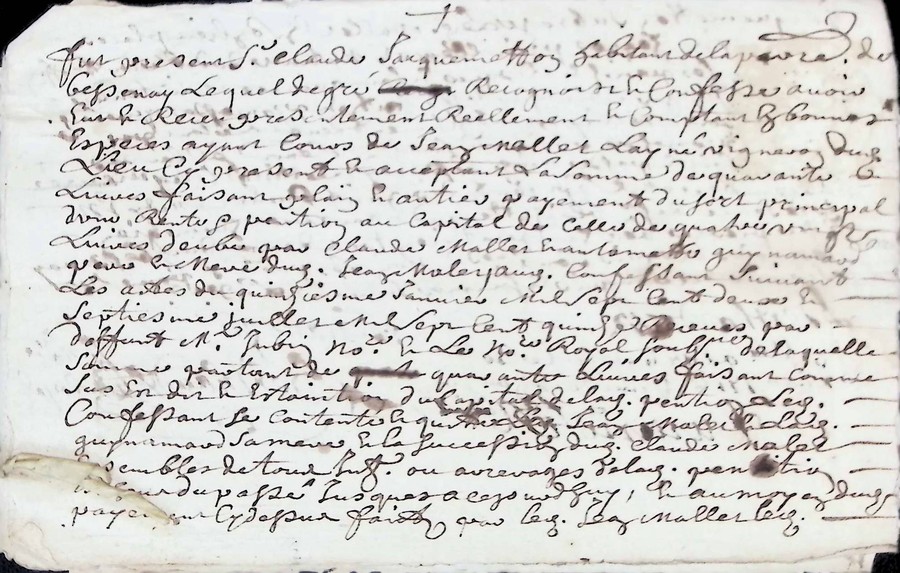 fut present Sr Claude Jacquemetton habitant de la parre. de
bessenay Lequel de gré Recognoist et Confesse avoir
Eut et Receu presentement Reellement et Comptant En bonnes
Especes ayant Cours de Jean Mallet Layné vigneron dud.
Lieu Cy present et acceptant La Somme de quarante
Livres faisant plain et antier payement du sort principal
dune Rente et pention au Capital de Celle de quatre vingt
Livres deube par Claude Mallet Et antoinette guynamard
pere et Mere dud. Jean Mallet Confessant Suivant
Les actes du quinziesme Janvier Mil Sept Cent deux Et
Septiesme juillet Mil Sept Cent quinze Receus par
deffunt Me. Jubin Nore. et Le Nore. Royal soubsne. de laquelle
Somme partant de quarante Livres faisant comme
Sus Est dit et Estaintion du Capital de lad. pention Led.
Confessant se Contente Et quitte Led. Jean Mallet Et Lad.
guynamard Sa mere Et la Succession dud. Claude Mallet
Ensembles de tous Jnts. ou arrerages de lad. pention
du passé Jusques a ce jourdhuy, Et au moyen dud.
payement Cy dessus fait par led. Jean Mallet led.